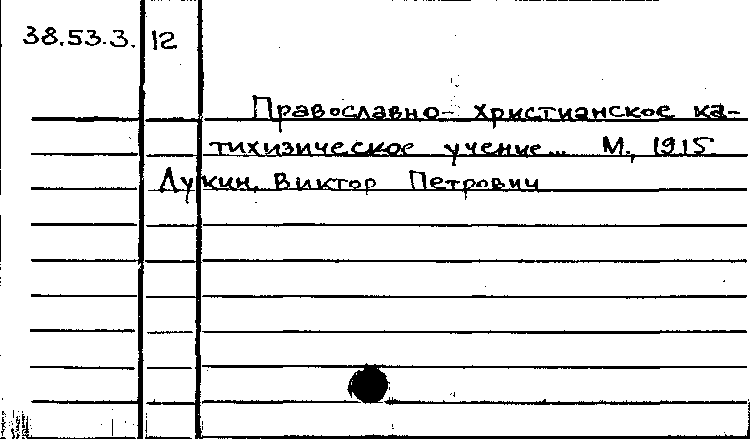 38.53.3. 12
Православно-христианское ка-
тихизическое учение... М., 1915
Лукин, Виктор Петрович